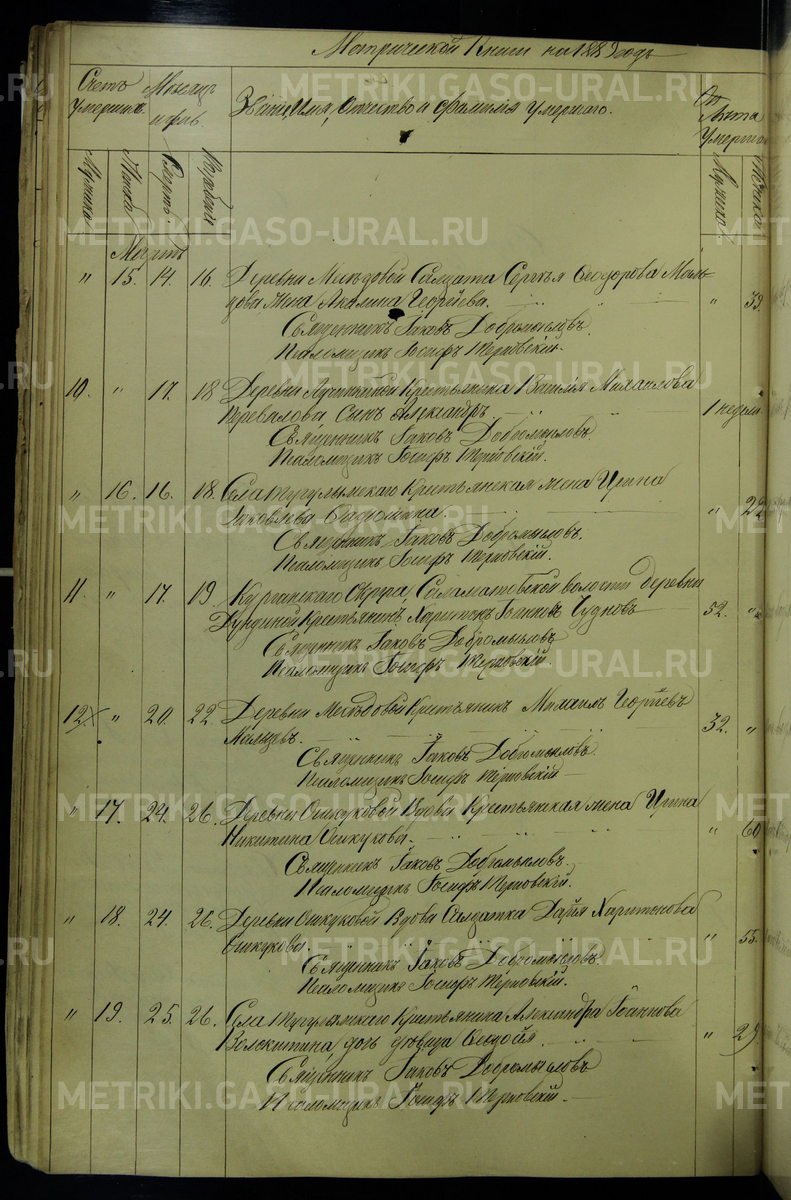 Метрической Книги на 1889 годъ
Счетъ Умершихъ. Месяцъ и день. Званіе, Имя, Отчество и фамилія умершаго. Лѣта Умершаго
Мужска Женска Смерть. Мужска Женска
Мартъ
" 15. 14. 16. Деревни Солдата Сергѣя Ѳеодорова
жена Акилина Георгіева. " 39.
Священникъ Іаковъ Добромысловъ.
Псаломщикъ Іосифъ Терновскій.
10. " 17. 18 Деревни Крестьянина Василія Михаилова
Перевалова сынъ Александръ. 1 недѣли
Священникъ Іаковъ Добромысловъ.
Псаломщикъ Іосифъ Терновскій.
" 16. 16. 18. Села Тугулымскаго Крестьянская жена Ирина
Яковлева " 22
Священникъ Іаковъ Добромысловъ.
Псаломщикъ Іосифъ Терновскій.
11. " 17. 19 Курганскаго Округа Саламатовской волости Деревни
Крестьянинъ Харитонъ Іоанновъ Чудновъ 52. "
Священникъ Іаковъ Добромысловъ
Псаломщикъ Іосифъ Терновскій.
12. " 20. 22. Деревни Крестьянинъ Георгіевъ
Мальцевъ. 32. "
Священникъ Іаковъ Добромысловъ.
Псаломщикъ Іосифъ Терновскій
" 17. 24. 26. Деревни Ошкуковой Вдова Крестьянская жена Ирина
Никитина Ошкукова. " 60
Священникъ Іаковъ Добромысловъ.
Псаломщикъ Іосифъ Терновскій.
" 18. 24. 26. Деревни Ошкуковой Вдова Солдатка Дарья Харитонова
Ошкукова. " 55.
Священникъ Іаковъ Добромысловъ.
Псаломщикъ Іосифъ Терновскій.
" 19. 25. 26. Села Тугулымскаго Крестьянина Александра Іоаннова
Волокитина дочь дѣвица "
Священникъ Іаковъ Добромысловъ
Псаломщикъ Іосифъ Терновскій.
METRIKI.GASO-URAL.RU